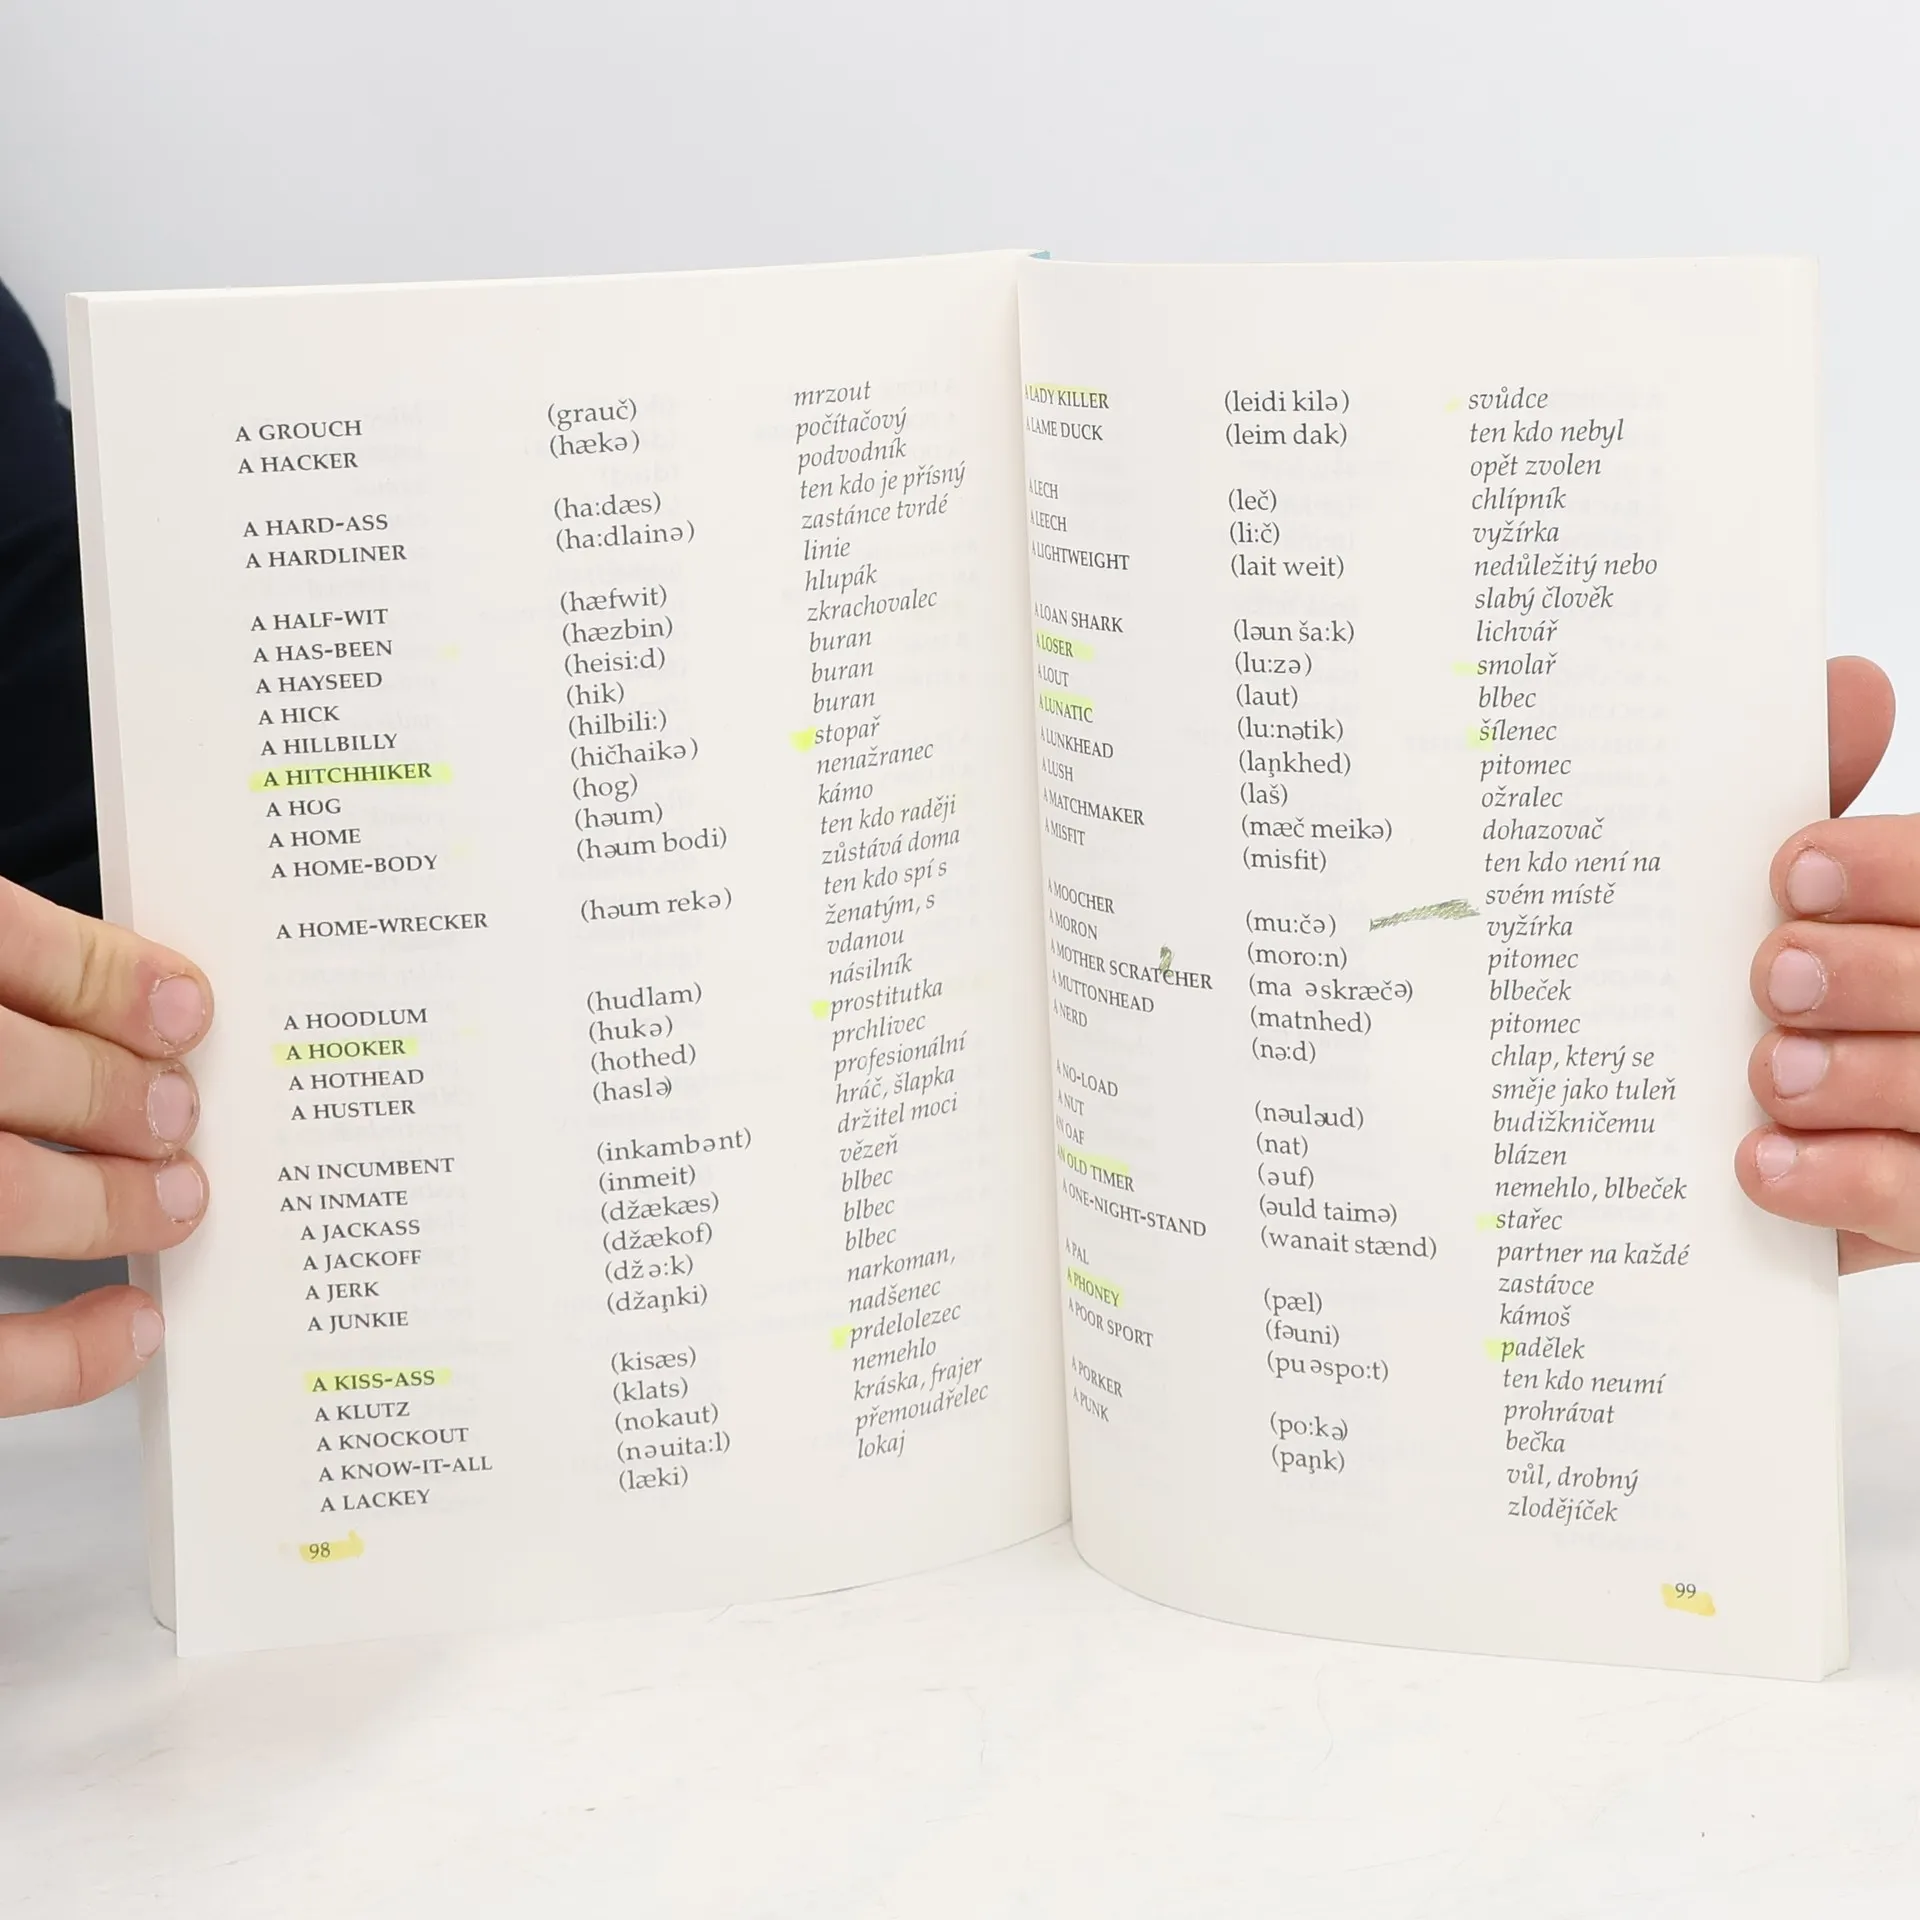 A GROUCH (grauč) mrzout
A HACKER (hækə) počítačový
podvodník
A HARD-ASS (ha:dæs) ten kdo je přísný
A HARDLINER (ha:dlainə) zastánce tvrdé
linie
A HALF-WIT (hæfwit) hlupák
A HAS-BEEN (hæzbin) zkrachovalec
A HAYSEED (heisi:d) buran
A HICK (hik) buran
A HILLBILLY (hilbili:) buran
A HITCHHIKER (hičhaikə) stopař
A HOG (hog) nenažranec
A HOME (həum) kámo
A HOME-BODY (həum bodi) ten kdo raději
zůstává doma
A HOME-WRECKER (həum rekə) ten kdo spí s
ženatým, s
vdanou
A HOODLUM (hudlam) násilník
A HOOKER (hukə) prostitutka
A HOTHEAD (hothed) prchlivec
A HUSTLER (haslə) profesionální
hráč, šlapka
AN INCUMBENT (inkambənt) držitel moci
AN INMATE (inmeit) vězeň
A JACKASS (džækæs) blbec
A JACKOFF (džækof) blbec
A JERK (džə:k) blbec
A JUNKIE (džaņki) narkoman,
nadšenec
A KISS-ASS (kisæs) prdelolezec
A KLUTZ (klats) nemehlo
A KNOCKOUT (nokaut) kráska, frajer
A KNOW-IT-ALL (nəuita:l) přemoudřelec
A LACKEY (læki) lokaj
98
A LADY KILLER (leidi kilə) svůdce
A LAME DUCK (leim dak) ten kdo nebyl
opět zvolen
A LECH (leč) chlípník
A LEECH (li:č) vyžírka
A LIGHTWEIGHT (lait weit) nedůležitý nebo
slabý člověk
A LOAN SHARK (ləun ša:k) lichvář
A LOSER (lu:zə) smolař
A LOUT (laut) blbec
A LUNATIC (lu:nətik) šílenec
A LUNKHEAD (laņkhed) pitomec
A LUSH (laš) ožralec
A MATCHMAKER (mæč meikə) dohazovač
A MISFIT (misfit) ten kdo není na
svém místě
A MOOCHER (mu:čə) vyžírka
A MORON (moro:n) pitomec
A MOTHER SCRATCHER (ma əskræčə) blbeček
A MUTTONHEAD (matnhed) pitomec
A NERD (nə:d) chlap, který se
směje jako tuleň
A NO-LOAD (nəuləud) budižkničemu
A NUT (nat) blázen
AN OAF (əuf) nemehlo, blbeček
AN OLD TIMER (əuld taimə) stařec
A ONE-NIGHT-STAND (wanait stænd) partner na každé
zastávce
A PAL (pæl) kámoš
A PHONEY (fəuni) padělek
A POOR SPORT (puəspo:t) ten kdo neumí
prohrávat
A PORKER (po:kə) bečka
A PUNK (paņk) vůl, drobný
zlodějíček
99